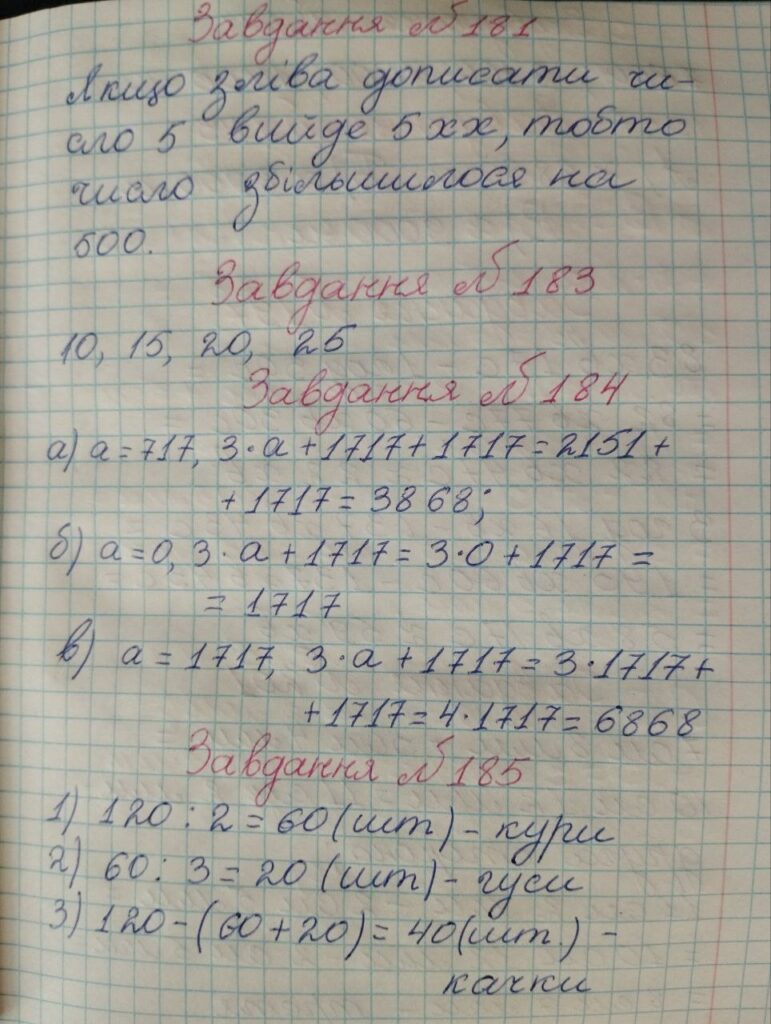 Завдання №181
Якщо зліва дописати чи-
сло 5 вийде 5хх, тобто
число збільшилося на
500.
Завдання №183
10, 15, 20, 25
Завдання №184
а) а = 717, 3·а + 1717 + 1717 = 2151 +
+ 1717 = 3868;
б) а = 0, 3·а + 1717 = 3·0 + 1717 =
= 1717
в) а = 1717, 3·а + 1717 = 3·1717 +
+ 1717 = 4·1717 = 6868
Завдання №185
1) 120 : 2 = 60 (шт) - кури
2) 60 : 3 = 20 (шт) - гуси
3) 120 - (60 + 20) = 40 (шт.) -
качки